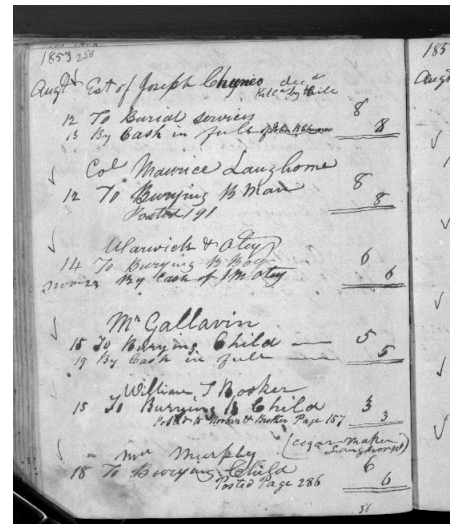 1857 256
Augt Est of Joseph Cheyneo decd
Killd by
12 To Burial Services 8
13 By Cash in full of John 8
Col Maurice Langhorne
12 To Burying B Man 8
Posted 191 8
Warwick & Otey
14 To Burying B Boy 6
Novm 23 By Cash of J M Otey 6
Mr Gallavin
15 To Burying Child 5
19 By Cash in full 5
William T Booker
15 To Burying B Child 3
Posted to Booker & Brother Page 157 3
Mr Murphy (Cegar-Maker Langhorns)
18 To Burying Child 6
Posted Page 286 6
38
185
Augt